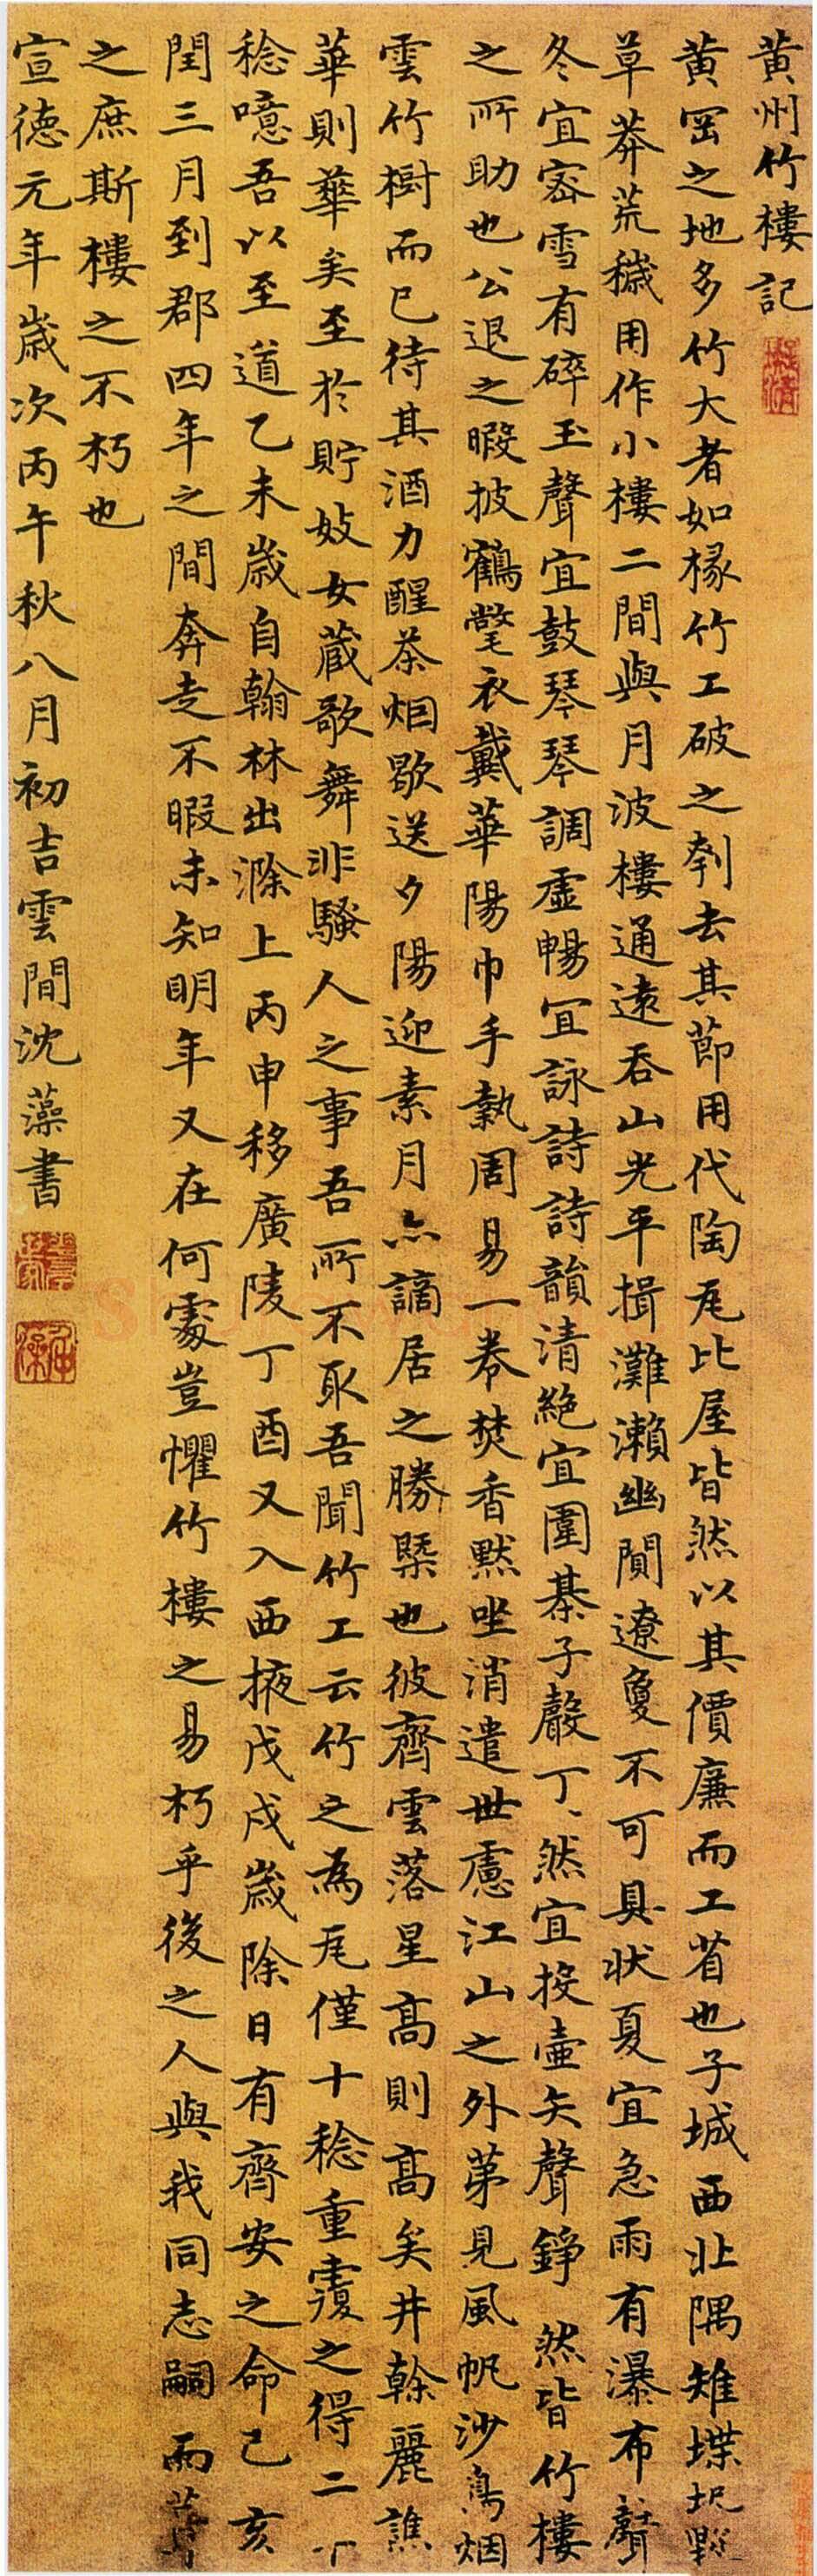 黄州竹樓記
黄岡之地多竹大者如椽竹工破之刳去其節用代陶瓦比屋皆然以其價廉而工省也子城西北隅雉堞圮毀
草莽荒穢用作小樓二間與月波樓通遠吞山光平揖灘瀨幽閴遼夐不可具狀夏宜急雨有瀑布聲
冬宜密雪有碎玉聲宜鼓琴琴調虛暢宜詠詩詩韻清絶宜圍棊子聲丁丶然宜投壺矢聲錚然皆竹樓
之所助也公退之暇披鶴氅衣戴華陽巾手執周易一卷焚香黙坐消遣世慮江山之外第見風帆沙鳥烟
雲竹樹而已待其酒力醒茶烟歇送夕陽迎素月亦謫居之勝槩也彼齊雲落星高則高矣井榦麗譙
華則華矣至於貯妓女蔵歌舞非騷人之事吾所不取吾聞竹工云竹之為瓦僅十稔重覆之得二十
稔噫吾以至道乙未歲自翰林出滁上丙申移廣陵丁酉又入西掖戊戌歲除日有齊安之命己亥
閏三月到郡四年之間奔走不暇未知明年又在何處豈懼竹樓之易朽乎後之人與我同志嗣而葺
之庶斯樓之不朽也
宣德元年歲次丙午秋八月初吉雲間沈藻書